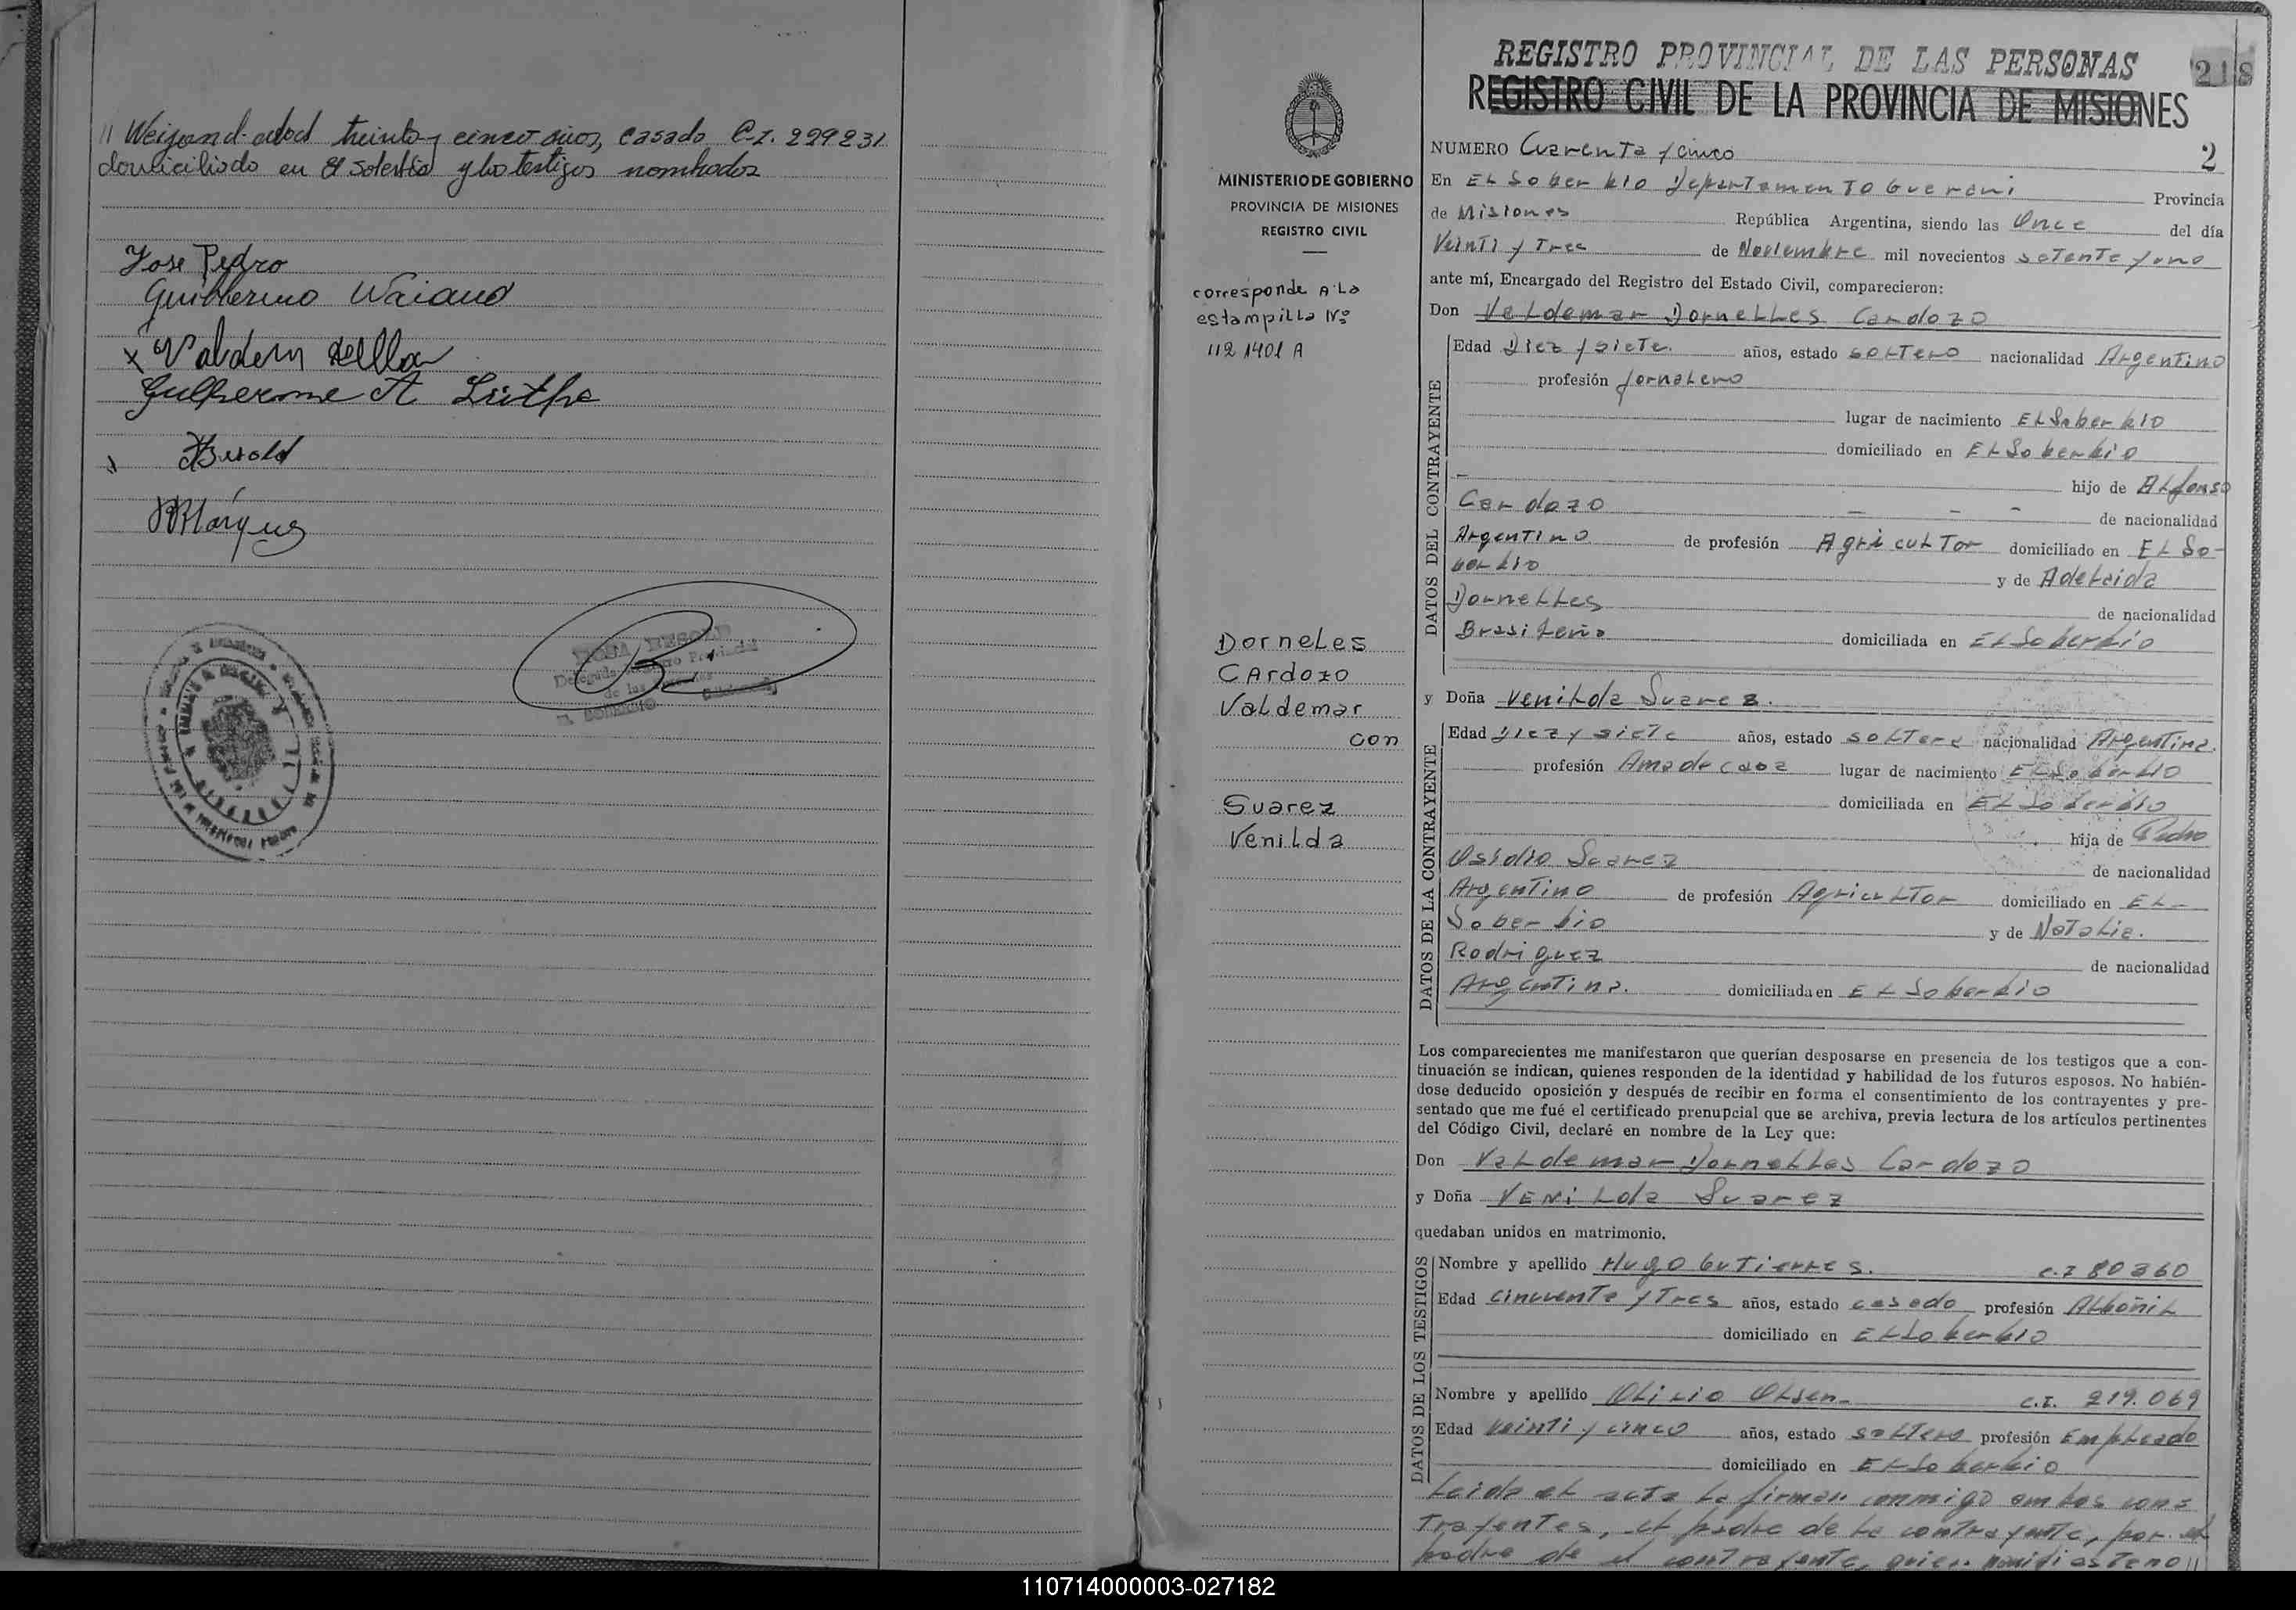 // Weigand edad treinta y cinco años, casado C.I. 229231
domiciliado en El Soberbio y los testigos nombrados
Jose Pedro
Guillermo
Valdem
Gulherme A
Márquez
MINISTERIO DE GOBIERNO
PROVINCIA DE MISIONES
REGISTRO CIVIL
corresponde A La
estampilla Nº
1121401 A
Dorneles
Cardozo
Valdemar
con
Suarez
Venilda
REGISTRO PROVINCIAL DE LAS PERSONAS 218
REGISTRO CIVIL DE LA PROVINCIA DE MISIONES
NUMERO Cuarenta y cinco 2
En El Soberbio Departamento Guarani Provincia
de Misiones República Argentina, siendo las Once del día
Veinti y Tres de Noviembre mil novecientos setenta y uno
ante mí, Encargado del Registro del Estado Civil, comparecieron:
Don Valdemar Dornelles Cardozo
DATOS DEL CONTRAYENTE
Edad Diez y siete. años, estado soltero nacionalidad Argentino
profesión Jornalero
lugar de nacimiento El Soberbio
domiciliado en El Soberbio
hijo de Alfonso
Cardozo de nacionalidad
Argentino de profesión Agricultor domiciliado en El So-
berbio y de Adelaida
Dornelles de nacionalidad
Brasileña domiciliada en El Soberbio
y Doña Venilda Suarez.
DATOS DE LA CONTRAYENTE
Edad Diez y siete años, estado soltera nacionalidad Argentina.
profesión Ama de casa lugar de nacimiento El Soberbio
domiciliada en El Soberbio
hija de Pedro
Osidio Suarez de nacionalidad
Argentino de profesión Agricultor domiciliado en El-
Soberbio y de Natalia.
Rodriguez de nacionalidad
Argentina. domiciliada en El Soberbio
Los comparecientes me manifestaron que querían desposarse en presencia de los testigos que a con-
tinuación se indican, quienes responden de la identidad y habilidad de los futuros esposos. No habién-
dose deducido oposición y después de recibir en forma el consentimiento de los contrayentes y pre-
sentado que me fué el certificado prenupcial que se archiva, previa lectura de los artículos pertinentes
del Código Civil, declaré en nombre de la Ley que:
Don Valdemar Dornelles Cardozo
y Doña Venilda Suarez
quedaban unidos en matrimonio.
DATOS DE LOS TESTIGOS
Nombre y apellido Hugo Gutierres. C.I 80360
Edad cincuenta y Tres años, estado casado profesión Albañil
domiciliado en El Soberbio
Nombre y apellido Olsen C.I. 219.069
Edad Veinti y cinco años, estado soltero profesión Empleado
domiciliado en El Soberbio
Leida el acta la firman conmigo ambos con=
trayentes, el padre de la contrayente, por el
padre de el contrayente, quien
110714000003-027182